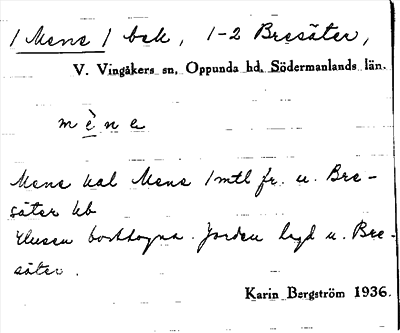 1 Mens 1 bsk, 1-2 Bresäter,
V. Vingåkers sn, Oppunda hd, Södermanlands län.
mène
Mens kal Mens 1 mtl fr. u. Bre-
säter kb
Husen borttagna. Jorden lagd u. Bre-
säter.
Karin Bergström 1936.